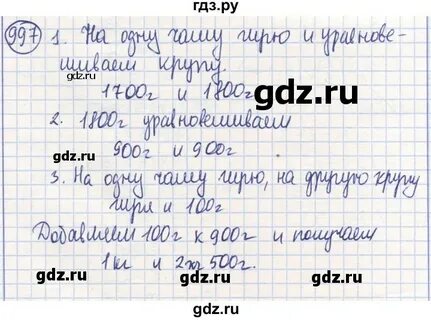 гдз.ру
997 1. На одну чашу гирю и уравнове-
шиваем крупу.
1700г и 1800г
gdz.ru gdz.ru
2. 1800г уравновешиваем
900г и 900г
gdz.ru gdz.ru
3. На одну чашу гирю, на другую крупу
гири и 100г
Добавляем 100г к 900г и получаем
1кг и 2кг 500г.
gdz.ru gdz.ru
гдз.ру